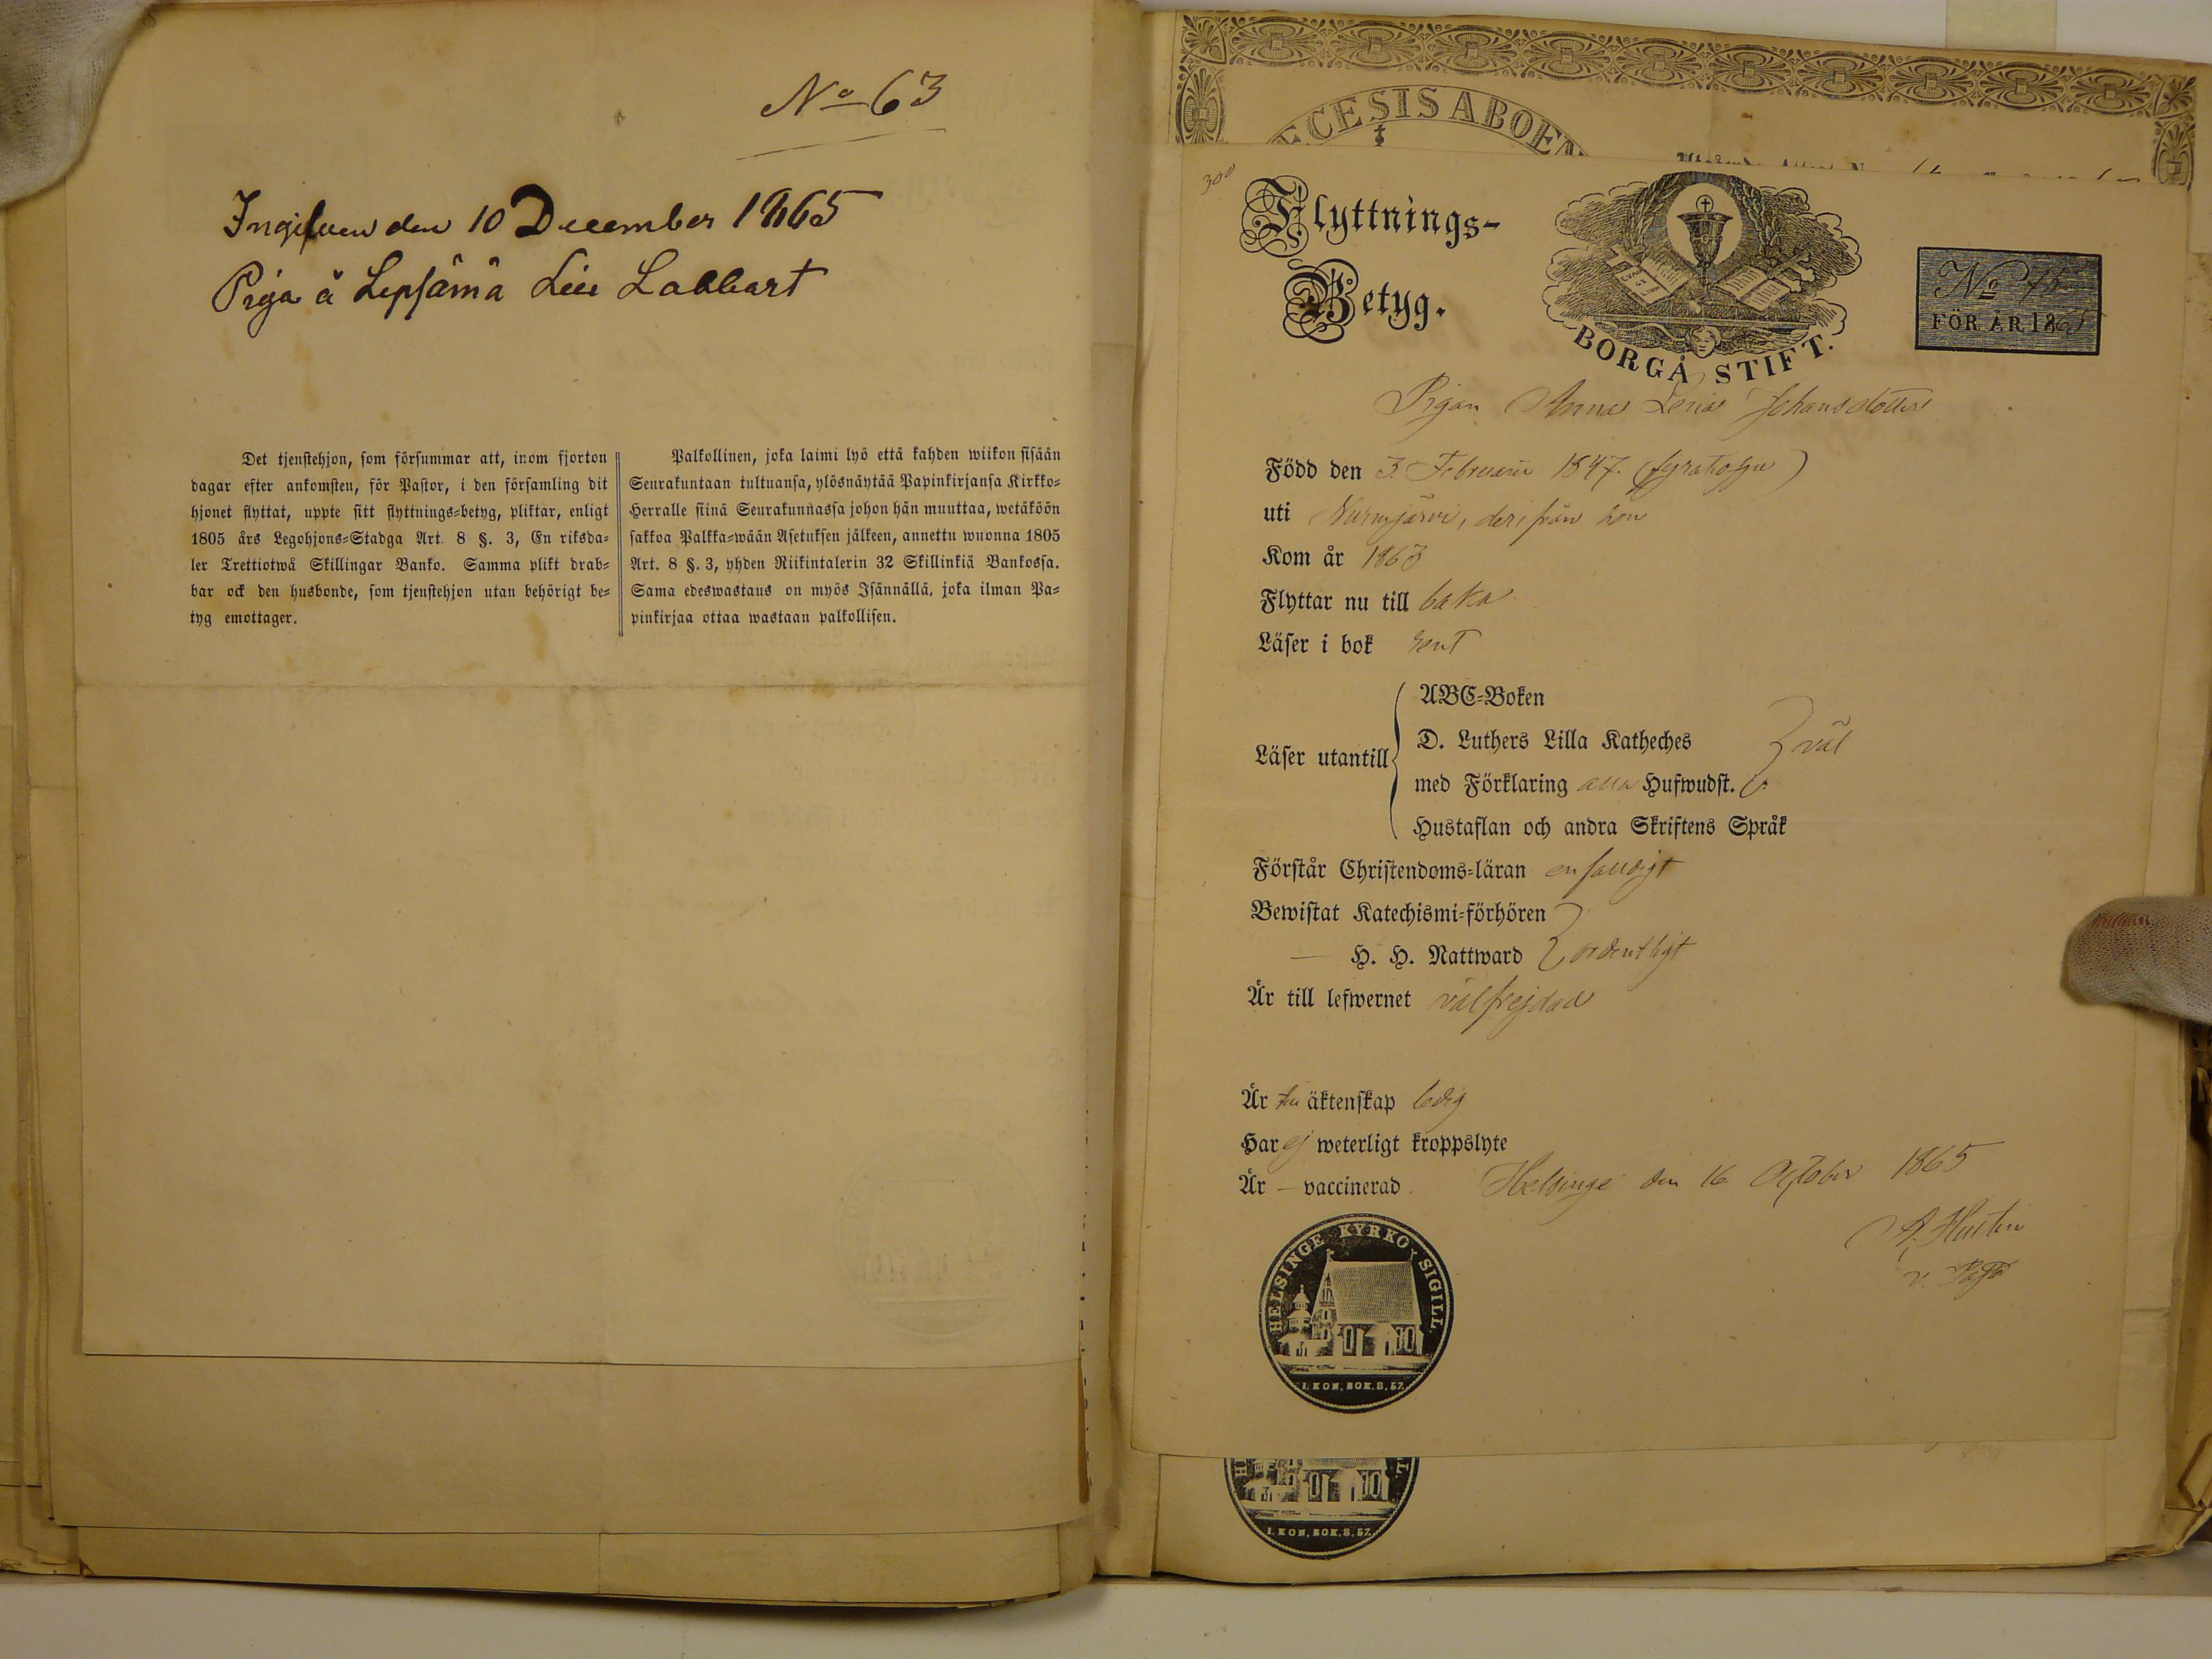 No 63
Ingifven den 10 December 1865
Piga å Lepsämä
Det tjenstehjon, som försummar att, inom fjorton
dagar efter ankomsten, för Pastor, i den församling dit
hjonet flyttat, uppte sitt flyttnings=betyg, pliktar, enligt
1805 års Legohjons=Stadga Art. 8 §. 3, En riksda=
ler Trettiotwå Skillingar Banko. Samma plikt drab=
bar ock den husbonde, som tjenstehjon utan behörigt be=
tyg emottager.
Palkollinen, joka laimi lyö että kahden wiikon sisään
Seurakuntaan tultuansa, ylösnäytää Papinkirjansa Kirkko=
Herralle siinä Seurakunnassa johon hän muuttaa, wetäköön
sakkoa Palkka=wään Asetuksen jälkeen, annettu wuonna 1805
Art. 8 §. 3, yhden Riikintalerin 32 Skillinkiä Bankossa.
Sama edeswastaus on myös Isännällä, joka ilman Pa=
pinkirjaa ottaa wastaan palkollisen.
ECESIS ABOEN
300
Flyttnings-
Betyg.
BORGÅ STIFT.
No 45
FÖR ÅR 1865
Pigan Anna Lena Johansdotter
Född den 3 Februarii 1847. (fyratiosju)
uti Nurmijärvi, derifrån hon
Kom år 1863
Flyttar nu till baka
Läser i bok rent
Läser utantill
ABC=Boken
D. Luthers Lilla Katheches
med Förklaring alla Hufwudst.
väl
Hustaflan och andra Skriftens Språk
Förstår Christendoms=läran enfaldigt
Bewistat Katechismi=förhören
— H. H. Nattward ordentligt
Är till lefwernet välfrejdad
Är till äktenskap ledig
Har ej weterligt kroppslyte
Är — vaccinerad
Helsinge den 16 October 1865
HELSINGE KYRKO SIGILL.
I. KON. BOK. 8, 57.
I. KON. BOK. 8, 57.